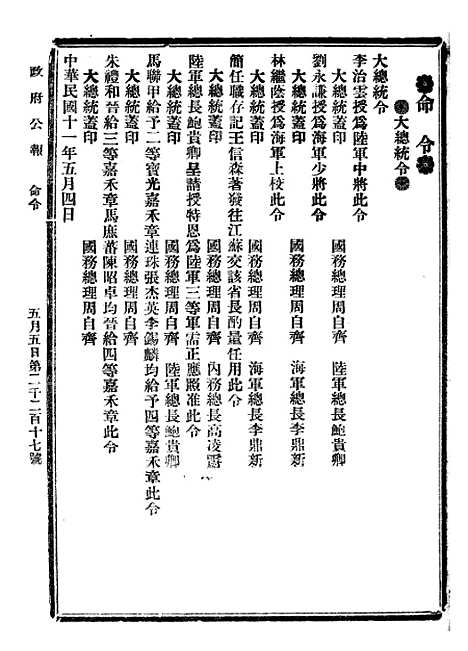 命令
大總統令
大總統令
李治雲授爲陸軍中將此令
大總統蓋印
國務總理周自齊 陸軍總長鮑貴卿
劉永謙授爲海軍少將此令
大總統蓋印
國務總理周自齊 海軍總長李鼎新
林繼蔭授爲海軍上校此令
大總統蓋印
國務總理周自齊 海軍總長李鼎新
簡任職存記王信森著發往江蘇交該省長酌量任用此令
大總統蓋印
國務總理周自齊 內務總長高凌霨
陸軍總長鮑貴卿呈請授特恩爲陸軍三等軍需正應照准此令
大總統蓋印
國務總理周自齊 陸軍總長鮑貴卿
馬聯甲給予二等寶光嘉禾章連珠張杰英李錫麟均給予四等嘉禾章此令
大總統蓋印
國務總理周自齊
朱禮和晉給三等嘉禾章馬庶蕃陳昭卓均晉給四等嘉禾章此令
大總統蓋印
國務總理周自齊
中華民國十一年五月四日
政府公報 命令 五月五日第二千二百十七號